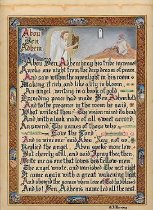 Abou
Ben
Adhem
Abou Ben Adhem (may his tribe increase)
Awoke one night from the deep dream of peace,
And saw within the moonlight in his room,
Making it rich, and like a lily in bloom,
An angel, writing in a book of gold.
Exceeding peace had made Ben Adhem bold,
And to the presence in the room he said,
"What writest thou?" The vision raised its head
And with a look made of all sweet accord,
Answered, "The names of those who
love the Lord."
And is mine one? said Abou. Nay, not so,
Replied the angel. Abou spoke more low,
But cheerly still; and said, I pray thee, then,
Write me as one that loves his fellow-men.
The angel wrote, and vanished. The next night
It came again with a great wakening light
And showed the names whom love of God had blessed
And lo! Ben Adhem's name led all the rest.